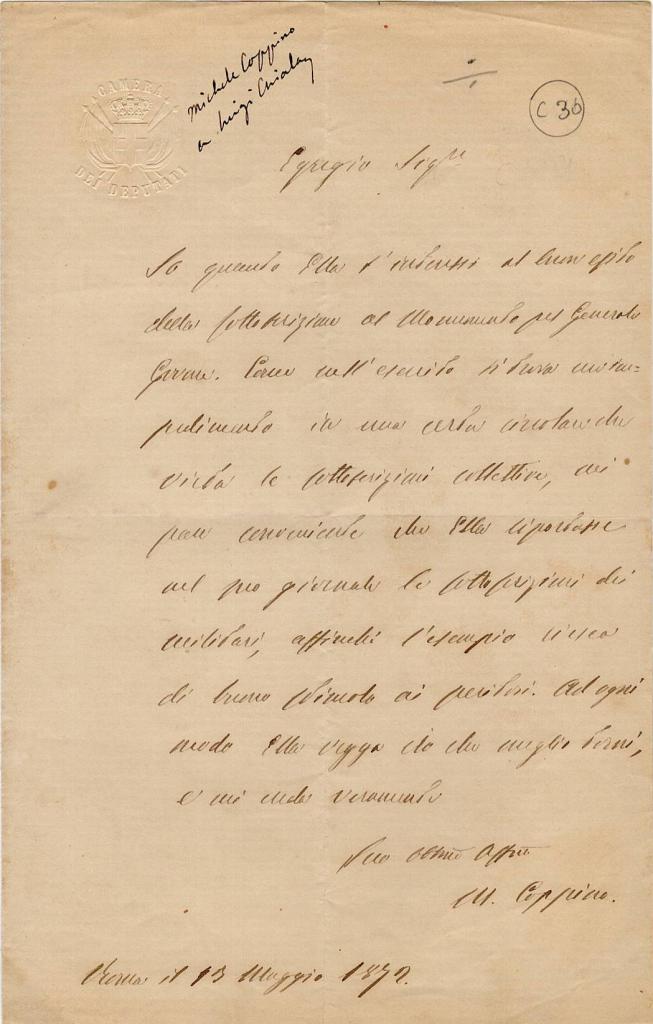 CAMERA
DEI DEPUTATI
Michele Coppino
a Luigi Chiala
C 36
Egregio Sigre
So quanto Ella s'interessi al buon esito
della sottoscrizione al Monumento pel Generale
Govone. Come nell'esercito si trova un im-
pedimento in una certa circolare che
vieta le sottoscrizioni collettive, mi
pare conveniente che Ella riportasse
nel suo giornale le sottoscrizioni dei
militari, affinché l'esempio riesca
di buono stimolo ai peritosi. Ad ogni
modo Ella vegga ciò che meglio torni,
e mi creda veramente
Suo Obbmo Affmo
M. Coppino.
Roma il 13 Maggio 1872.